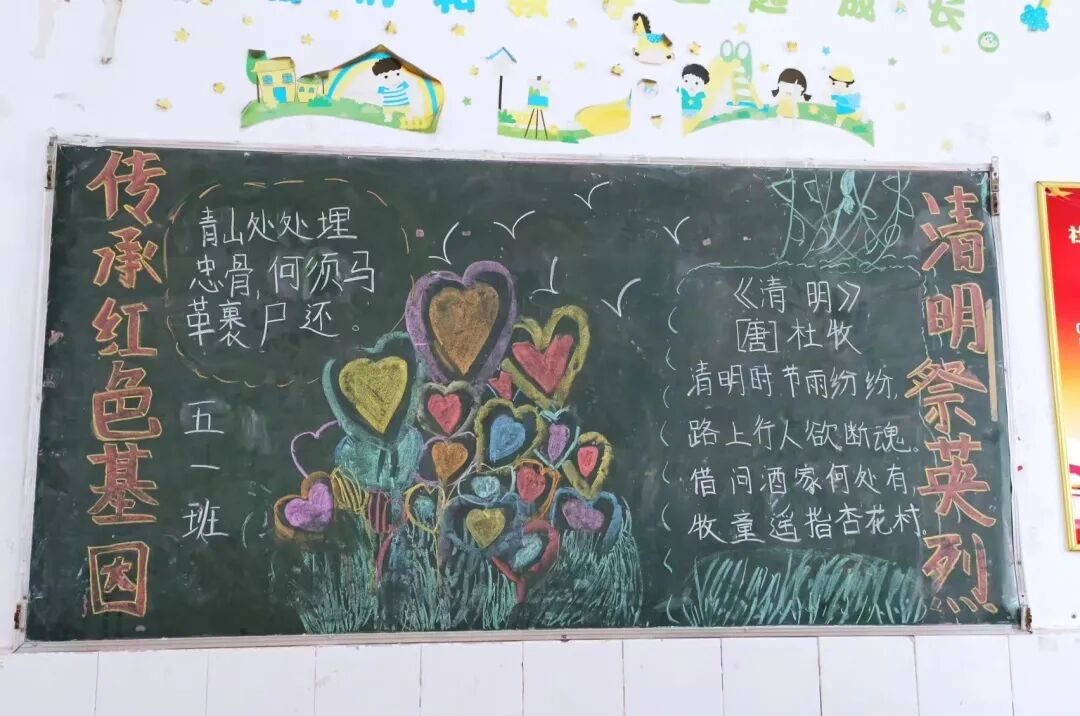 成长
传承红色基因
青山处处埋
忠骨,何须马
革裹尸还。
五一班
《清明》
[唐]杜牧
清明时节雨纷纷,
路上行人欲断魂。
借问酒家何处有,
牧童遥指杏花村
清明祭英烈